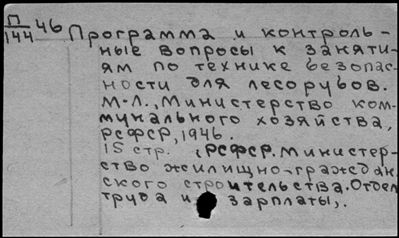 П-46
144
Программа и контроль-
ные вопросы к заняти-
ям по технике безопас-
ности для лесорубов.
М-Л., Министерство ком-
мунального хозяйства,
РСФСР, 1946.
15 стр. (РСФСР. Министер-
ство жилищно-граждан.
ского строительства. Отдел
труда и зарплаты).